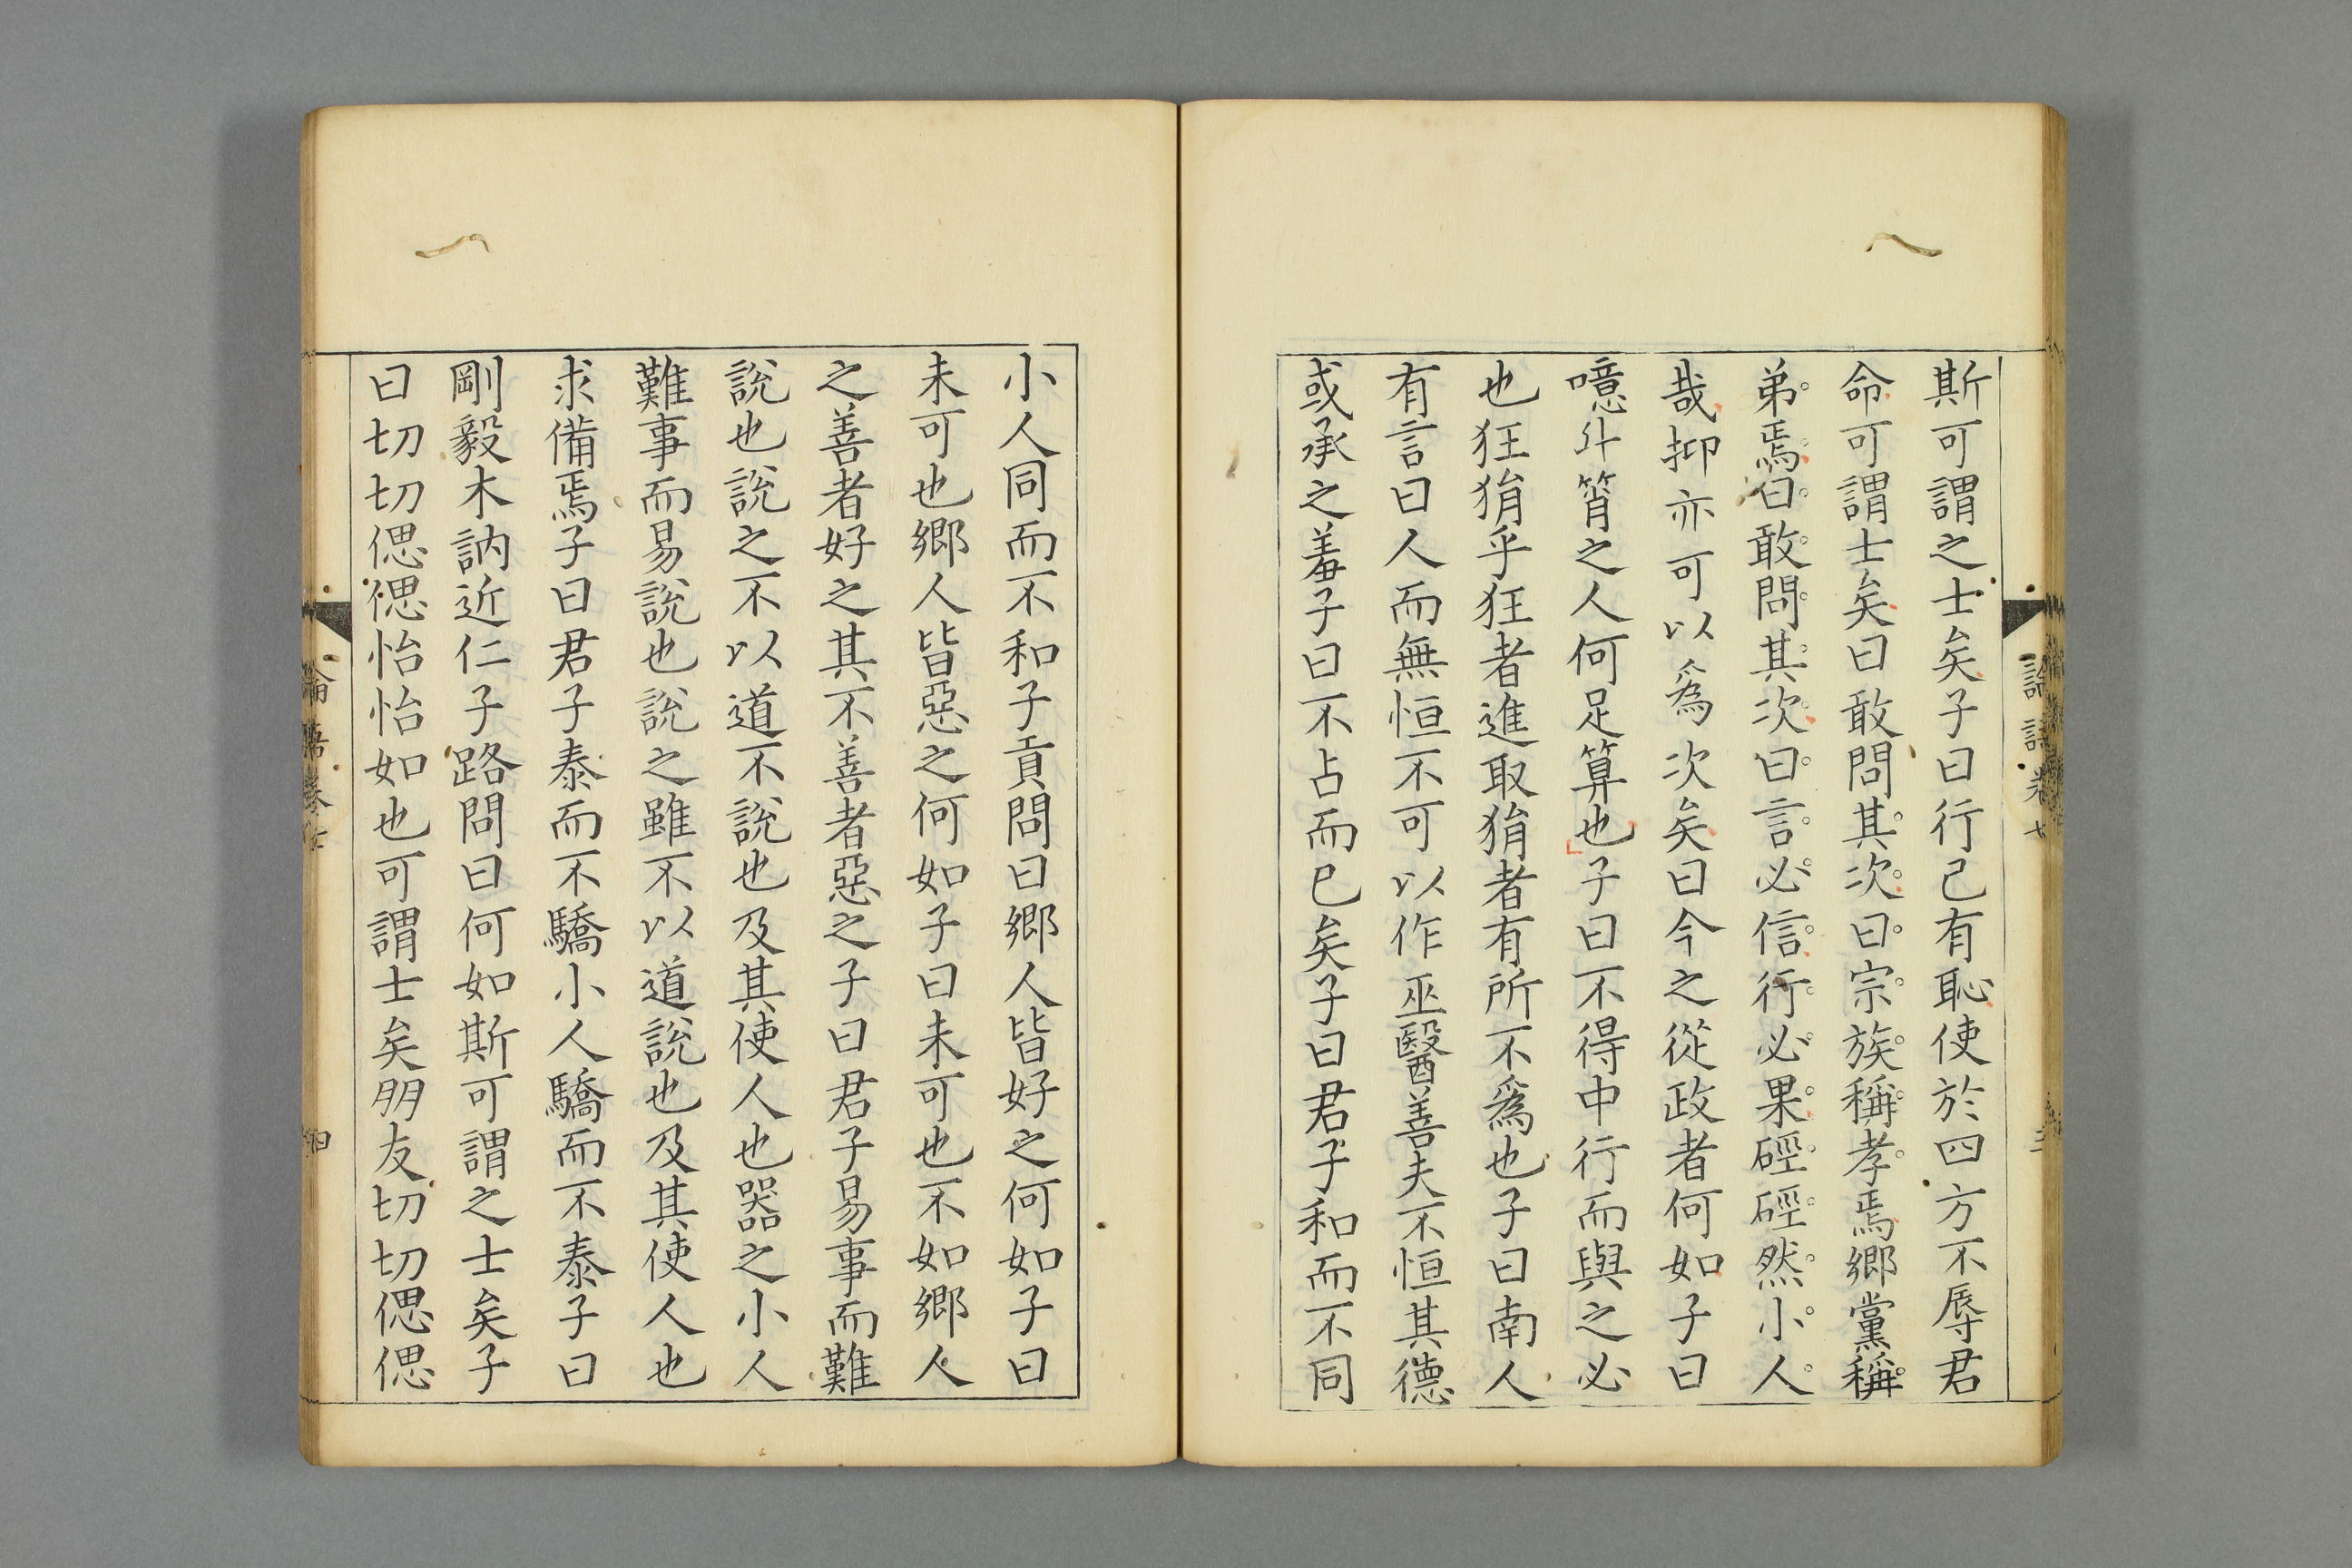 斯可謂之士矣子曰行己有恥使於四方不辱君
命可謂士矣曰敢問其次曰宗族稱孝焉鄉黨稱
弟焉曰敢問其次曰言必信行必果硜硜然小人
哉抑亦可以爲次矣曰今之從政者何如子曰
噫斗筲之人何足算也子曰不得中行而與之必
也狂狷乎狂者進取狷者有所不爲也子曰南人
有言曰人而無恒不可以作巫醫善夫不恒其德
或承之羞子曰不占而已矣子曰君子和而不同
小人同而不和子貢問曰鄉人皆好之何如子曰
未可也鄉人皆惡之何如子曰未可也不如鄉人
之善者好之其不善者惡之子曰君子易事而難
說也說之不以道不說也及其使人也器之小人
難事而易說也說之雖不以道說也及其使人也
求備焉子曰君子泰而不驕小人驕而不泰子曰
剛毅木訥近仁子路問曰何如斯可謂之士矣子
曰切切偲偲怡怡如也可謂士矣朋友切切偲偲
論語卷七
四